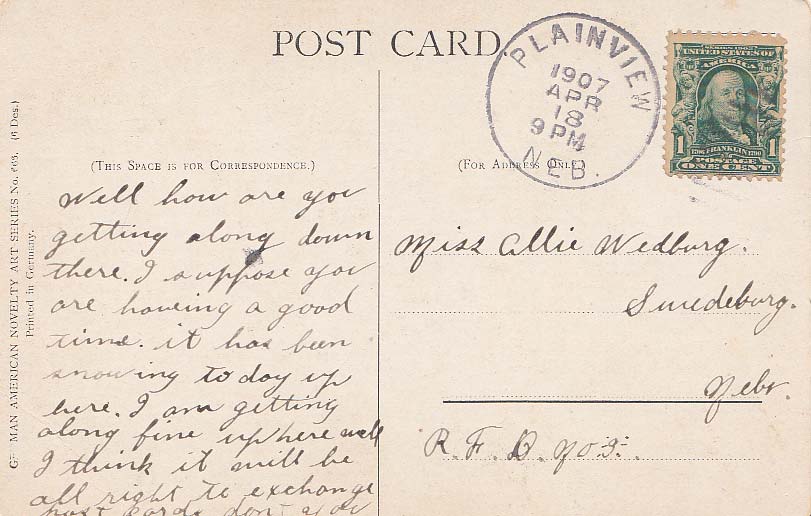 POST CARD
PLAINVIEW
1907
APR
18
9 PM
NEB.
SERIES 1902
UNITED STATES OF
AMERICA
1 1
1706 FRANKLIN 1790
POSTAGE
ONE CENT
MAN AMERICAN NOVELTY ART SERIES No. (6 Des.)
Printed in Germany.
(THIS SPACE IS FOR CORRESPONDENCE.)
(FOR ADDRESS ONLY.)
Well how are you
getting along down
there. I suppose you
are haveing a good
time. it has been
snowing to day up
here. I am getting
along fine up here well
I think it will be
all right to exchange
post cards don't you
Miss Allie Wedburg.
Swedeburg.
Nebr.
R. F. D. No